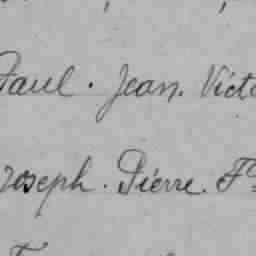 Paul. Jean. Vict
Joseph. Pierre. F